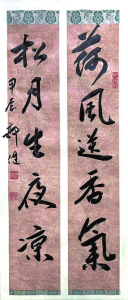 荷风送香氣
松月生夜凉
甲辰